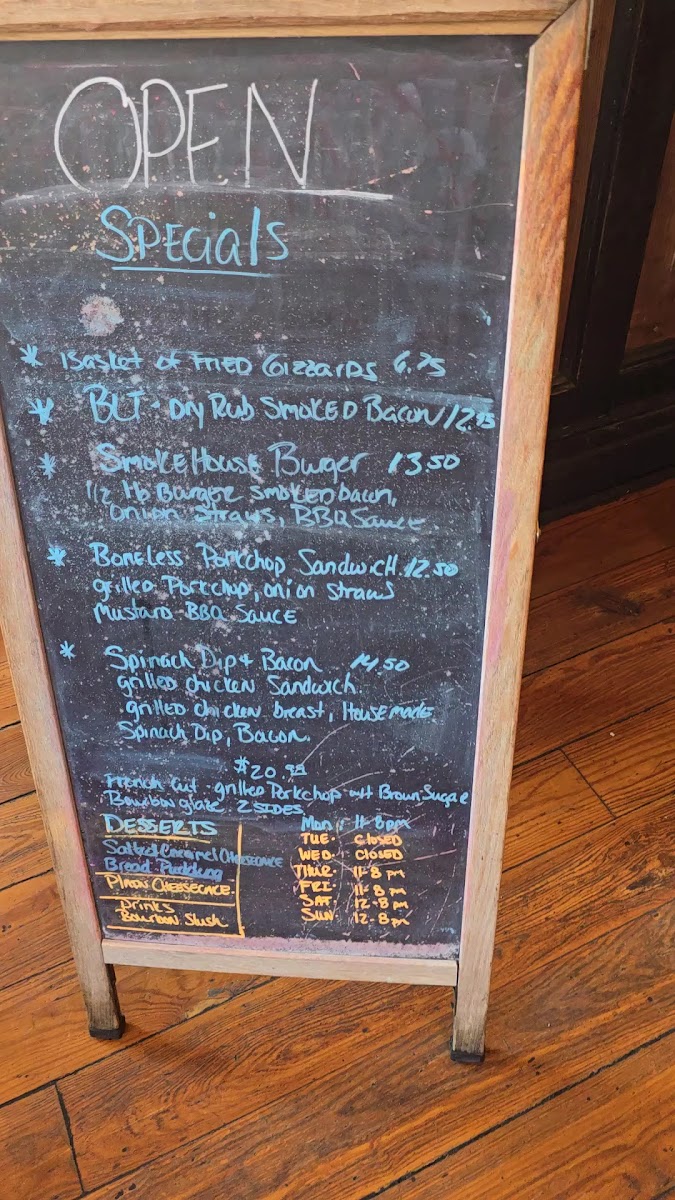 OPEN
Specials
Basket of FRIED GizzarDs 6.75
BLT - Dry Rub SMOKED Bacon 12.95
SmokeHouse Burger 13.50
1/2 lb Burger smoked bacon,
onion straws, BBQ Sauce
Boneless Porkchop Sandwich 12.50
grilled Porkchop, onion straws
Mustard BBQ Sauce
Spinach Dip & Bacon 14.50
grilled chicken Sandwich.
grilled chicken breast, House made
Spinach Dip, Bacon
$20.95
French Cut grilled Porkchop w/ Brown Sugar
Bourbon glaze 2 SIDES
DESSERTS
Salted Caramel Cheesecake
Bread Pudding
Plain Cheesecake
Drinks
Bourbon Slush
Mon: 11-8pm
TUE. CLOSED
WED. CLOSED
THUR. 11-8 pm
FRI. 11-8 pm
SAT. 12-8 pm
SUN. 12-8 pm